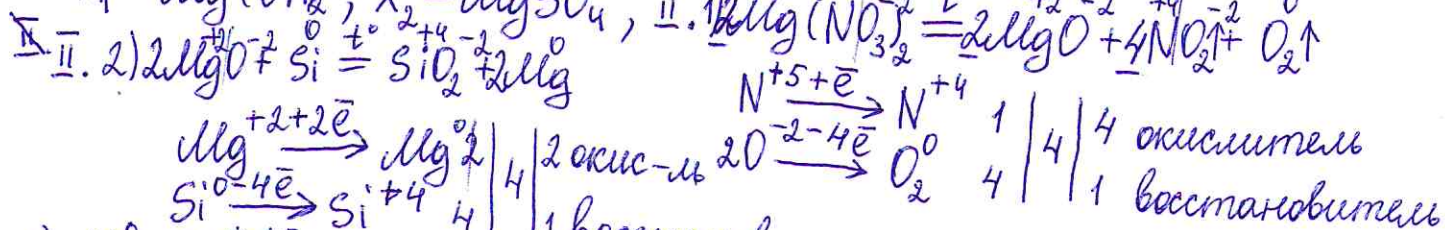 Mg(OH)₂, X₂ = MgSO₄, II. 1) 2Mg(NO₃)₂ =t°= 2Mg⁺²O⁻² + 4N⁺⁴O₂⁻²↑ + O₂⁰↑
II. 2) 2Mg⁺²O⁻² + Si⁰ =t°= Si⁺⁴O₂⁻² + 2Mg⁰
N⁺⁵ +ē → N⁺⁴ 1 | 4 | 4 окислитель
Mg⁺² +2ē → Mg⁰ 2 | 4 | 2 окис-ль
2O⁻² -4ē → O₂⁰ 4 | | 1 восстановитель
Si⁰ -4ē → Si⁺⁴ 4 | | 1